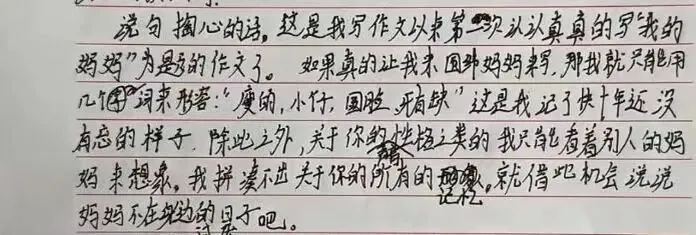 说句掏心的话，这是我写作文以来第一次认认真真的写“我的
妈妈”为是的作文了。如果真的让我来回妈妈来写，那我就只能用
几个词来形容：“瘦的，小个，圆脸，牙有缺”这是我记了快十年还没
有忘的样子，除此之外，关于你的性格之类的我只能看着别人的妈
妈来想象。我拼凑不出关于你的所有的记忆。就借此机会说说
妈妈不在身边的日子吧。